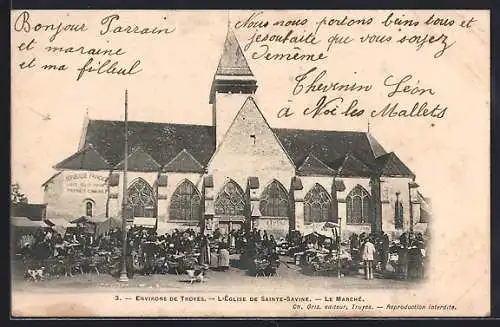 Bonjour Parrain
et marraine
et ma filleul
Nous nous portons biens tous et
jesouhaite que vous soiyez
demême
Chevenin Léon
à Noë les Mallets
RÉPUBLIQUE FRANÇAISE
3. – ENVIRONS DE TROYES. – L'ÉGLISE DE SAINTE-SAVINE. – LE MARCHÉ.
CH. GRIS, éditeur, Troyes. – Reproduction interdite.